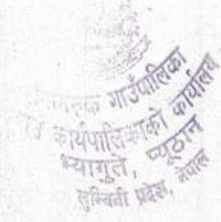 गाउँपालिका
कार्यपालिकाको कार्यालय
भ्यागुते, प्यूठान
लुम्बिनी प्रदेश, नेपाल